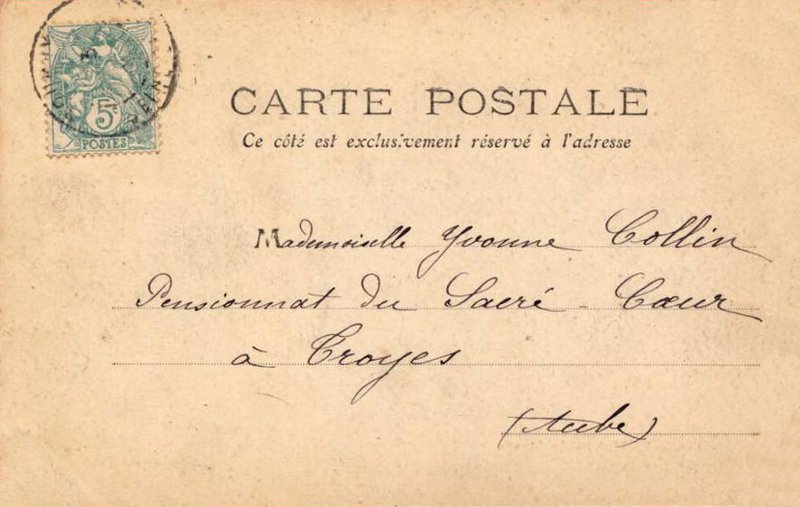 5
POSTES
CARTE POSTALE
Ce côté est exclusivement réservé à l'adresse
Mademoiselle Yvonne Collin
Pensionnat du Sacré-Cœur
à Troyes
(Aube)